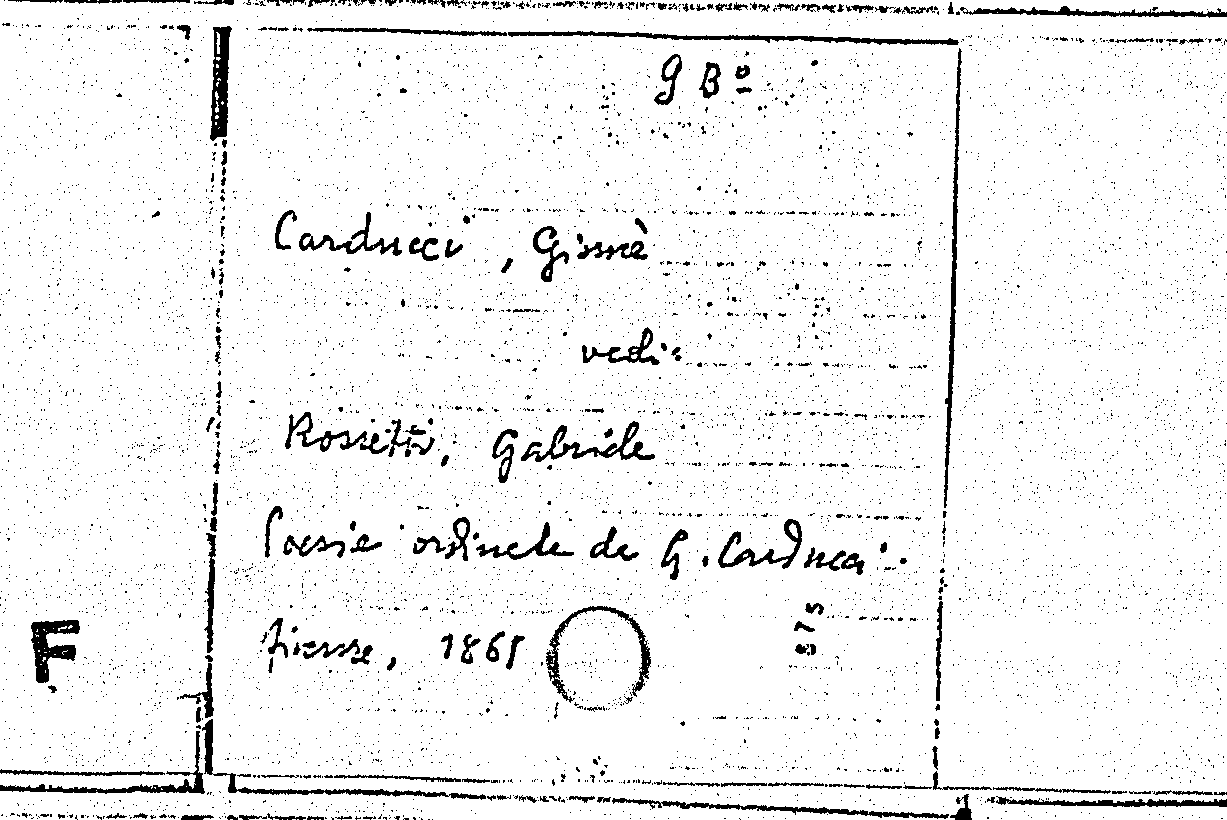 G B º
Carducci, Giosuè
vedi:
Rossetti, Gabriele
Poesie ordinate da G. Carducci.
Firenze, 1861
875
F